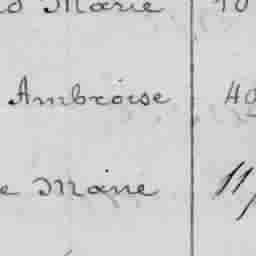 Marie 10
Ambroise 40
e Marie 117